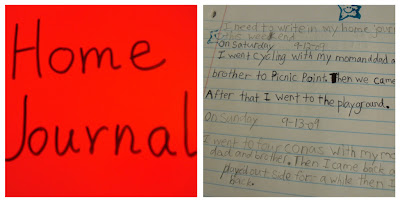 Home
Journal
I need to write in my home jour
the weekend
On Saturday 9-12-09
I went cycling with my mom and dad a
brother to Picnic Point. Then we came
After that I went to the playground.
On Sunday 9-13-09
I went to four conas with my mo
dad and brother. Then I came back a
played out side for a while then I
back.